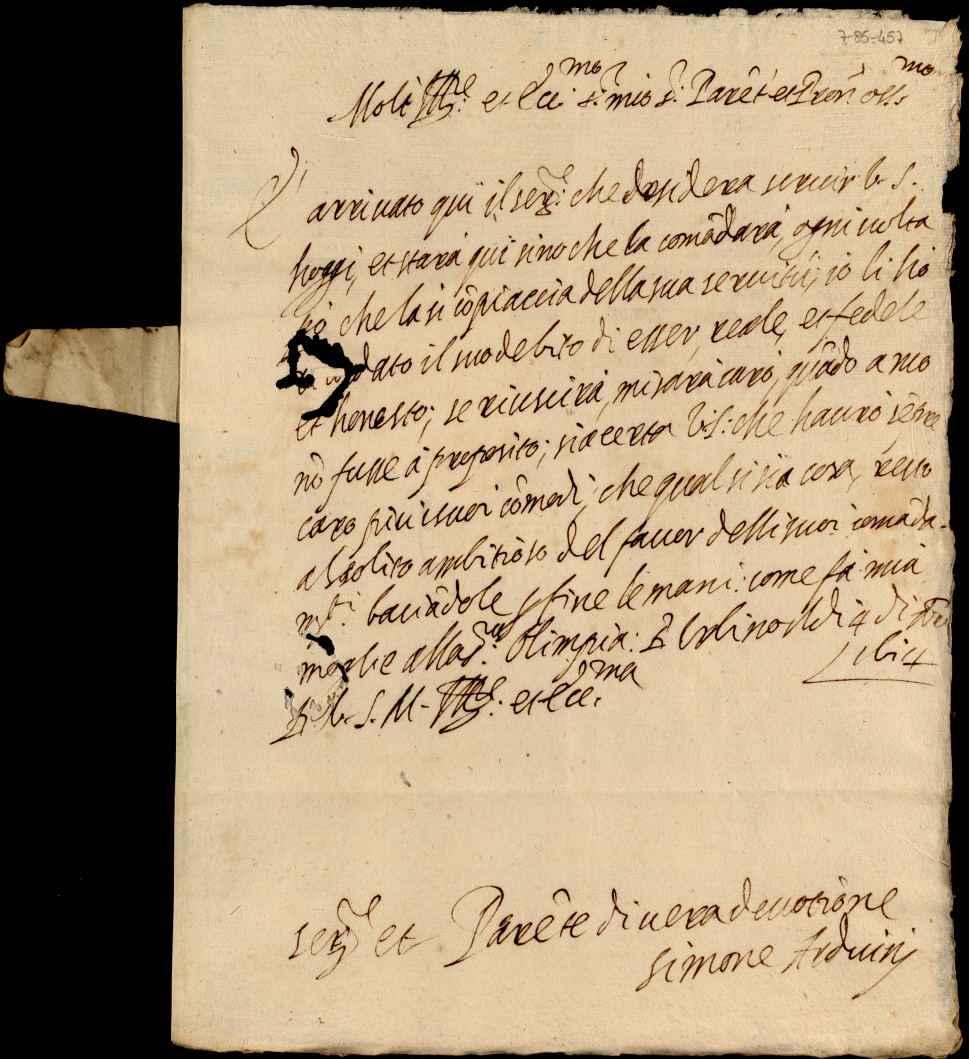 7-85-457
Molt Ill.re et Ecc.mo s.r mio s.r Parẽt et Pron oss.mo
E' arrivato qui il ser.re che desidera servir V. S.
hoggi, et starà qui sino che la comãdarà, ogni volta
però che la si cõpiaccia della sua servitù; io li ho
dato il suo debito di esser reale, et fedele
et honesto; se riuscirà, mi sarà caro, quãdo a nco
nõ fusse à proposito; sia certa V. S: che haurò sẽpre
caro più i suoi cõmodi, che qual si sia cosa, resto
al solito ambitioso del favor delli suoi comãda-
m.ti baciãdole p fine le mani: come fà mia
moglie alla s.ra Olimpia: Di Urbino il dì 4 di
1614
Di V. S. M. Ill.re et Ecc.ma
ser.re et Parẽte di vera devotione
Simone Arduini